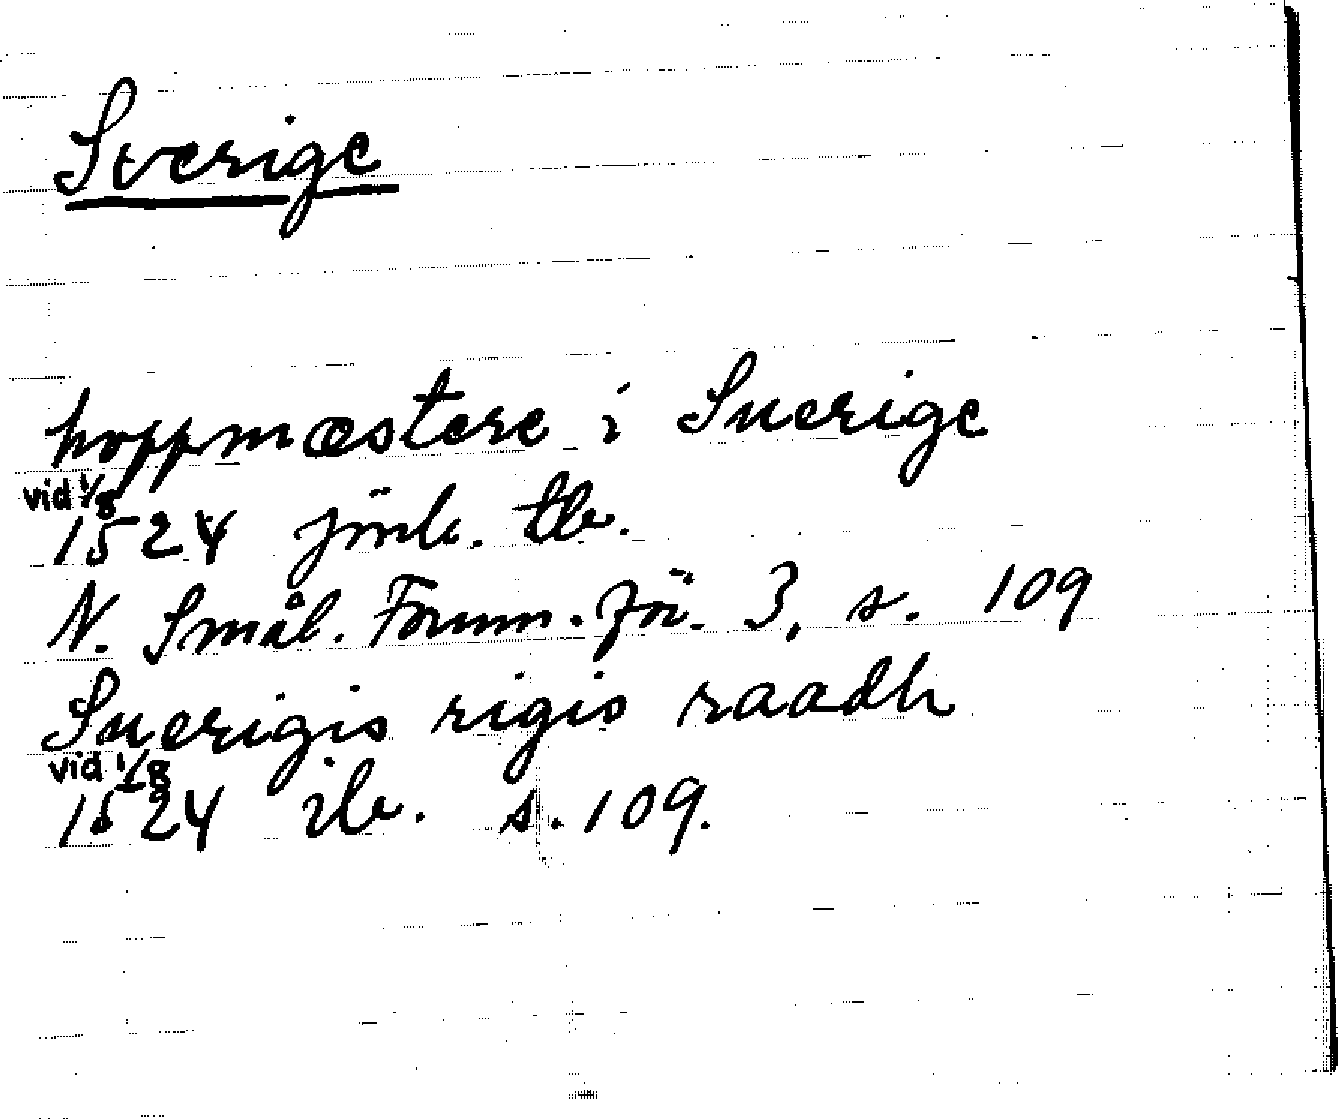 Sverige
hoppmæstere i Suerige
vid 1/8
1524 jönk. tb.
N. Smål. Fornm. för. 3, s. 109
Suerigis rigis raadh
vid 1/8
1524 ib. s. 109.